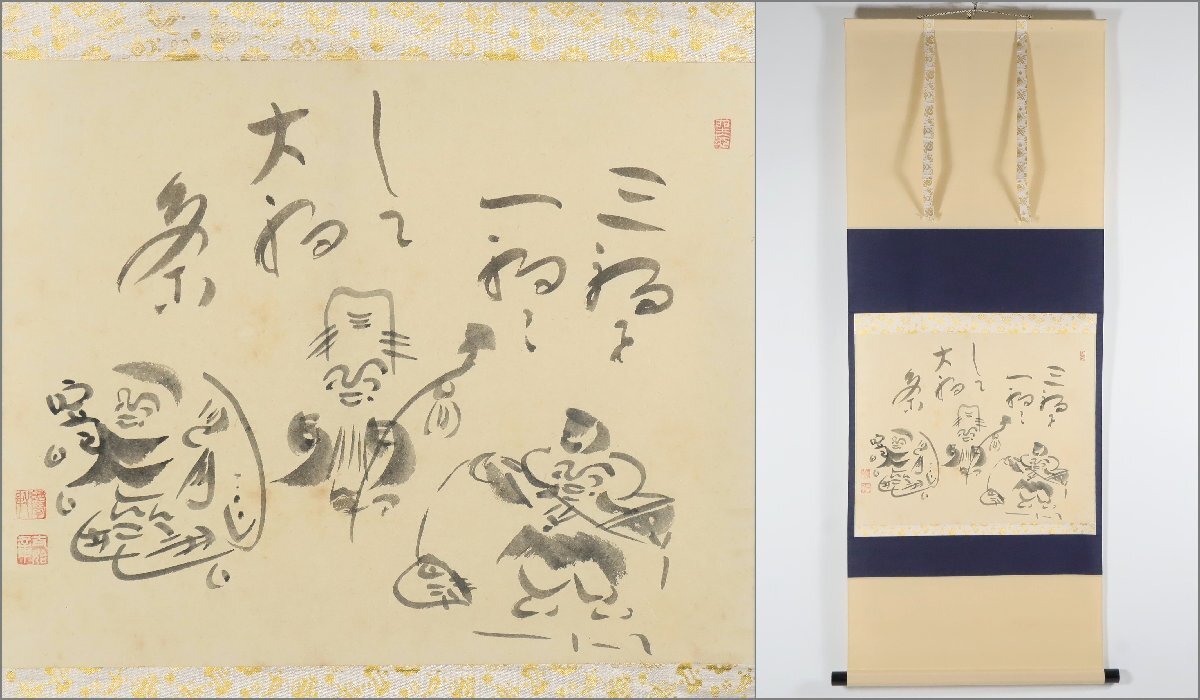 三福を
一福に
して
大福
茶